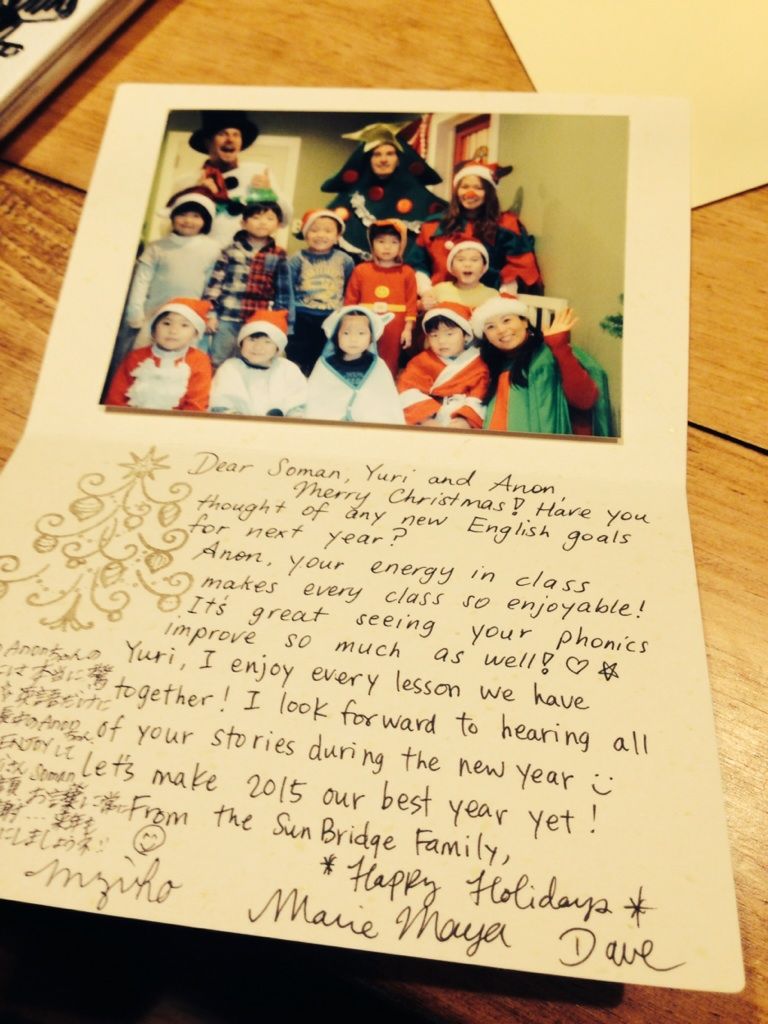 Dear Soman, Yuri and Anon,
Merry Christmas! Have you
thought of any new English goals
for next year?
Anon, your energy in class
makes every class so enjoyable!
It's great seeing your phonics
improve so much as well! ♡☆
Yuri, I enjoy every lesson we have
together! I look forward to hearing all
of your stories during the new year
Let's make 2015 our best year yet!
From the SunBridge Family,
* Happy Holidays *
Marie Maya Dave
Anonちゃんの
には本当に驚
英語だけに
Anon
ENJOYして
Soman
お言葉に
にしましょうネ!!